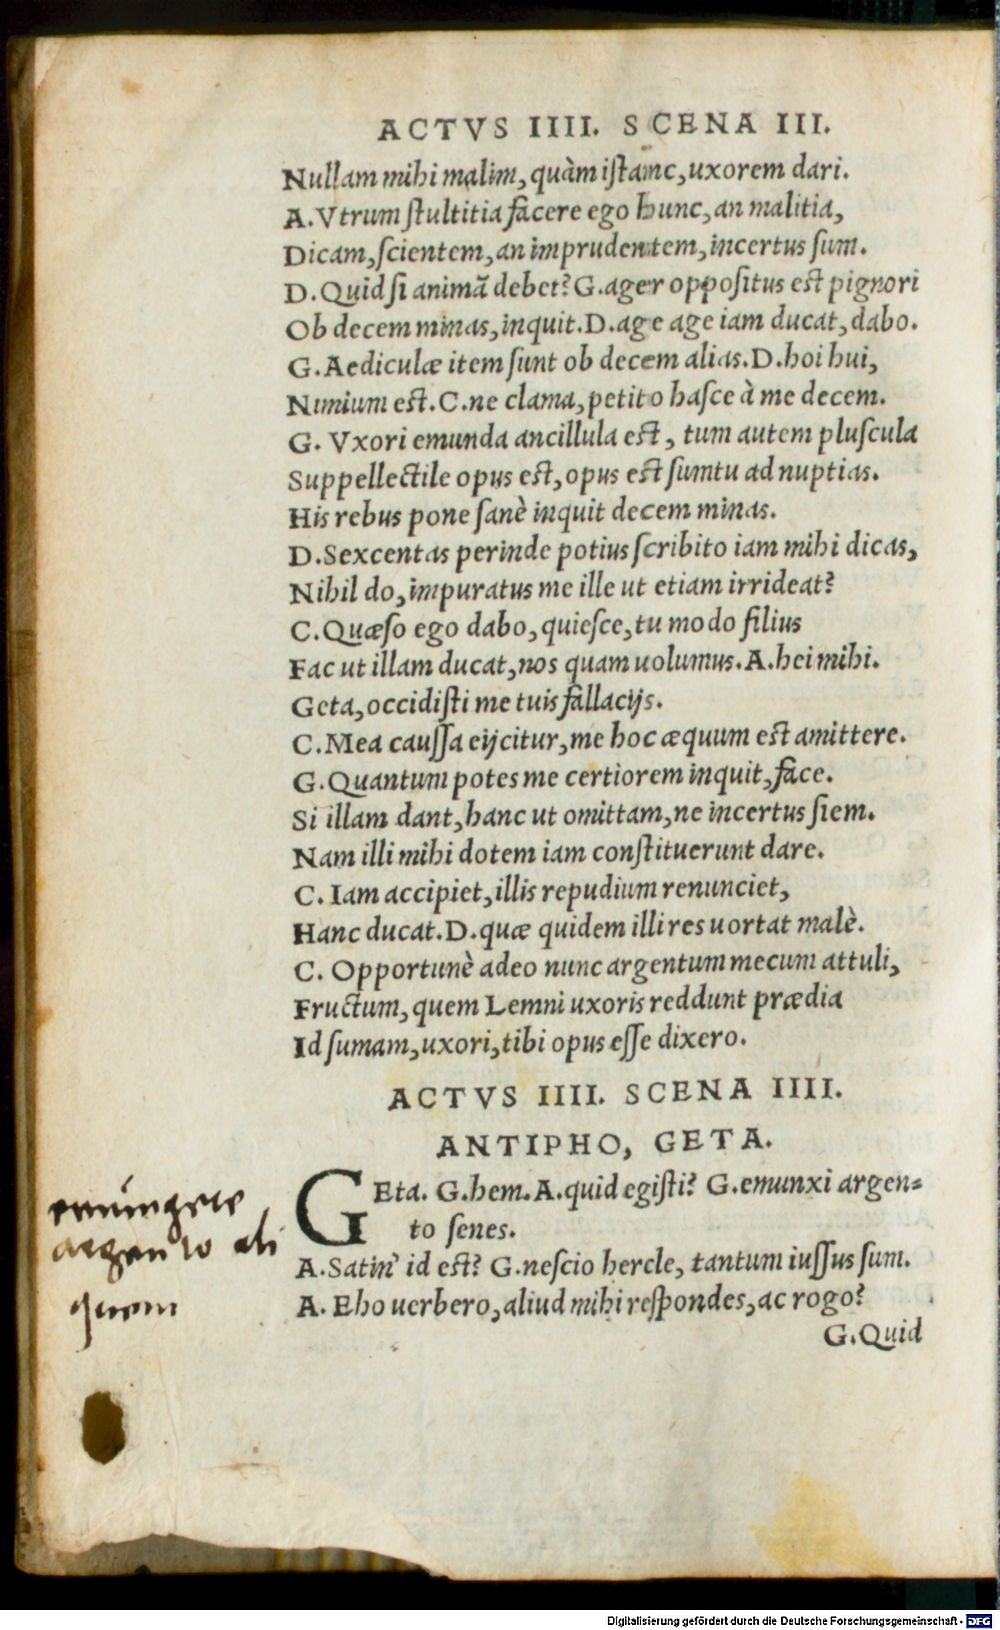 ACTVS IIII. SCENA III.
Nullam mihi malim, quàm istanc, uxorem dari.
A. Vtrum stultitia facere ego hunc, an malitia,
Dicam, scientem, an imprudentem, incertus sum.
D. Quid si animã debet? G. ager oppositus est pignori
Ob decem minas, inquit. D. age age iam ducat, dabo.
G. Aediculæ item sunt ob decem alias. D. hoi hui,
Nimium est. C. ne clama, petito hasce à me decem.
G. Vxori emunda ancillula est, tum autem pluscula
Suppellectile opus est, opus est sumtu ad nuptias.
His rebus pone sanè inquit decem minas.
D. Sexcentas perinde potius scribito iam mihi dicas,
Nihil do, impuratus me ille ut etiam irrideat?
C. Quæso ego dabo, quiesce, tu modo filius
Fac ut illam ducat, nos quam uolumus. A. hei mihi.
Geta, occidisti me tuis fallacijs.
C. Mea caussa eijcitur, me hoc æquum est amittere.
G. Quantum potes me certiorem inquit, face.
Si illam dant, hanc ut omittam, ne incertus siem.
Nam illi mihi dotem iam constituerunt dare.
C. Iam accipiet, illis repudium renunciet,
Hanc ducat. D. quæ quidem illi res uortat malè.
C. Opportunè adeo nunc argentum mecum attuli,
Fructum, quem Lemni uxoris reddunt prædia
Id sumam, uxori, tibi opus esse dixero.
ACTVS IIII. SCENA IIII.
ANTIPHO, GETA.
GEta. G. hem. A. quid egisti? G. emunxi argen=
to senes.
A. Satin' id est? G. nescio hercle, tantum iussus sum.
A. Eho uerbero, aliud mihi respondes, ac rogo?
G. Quid
emúngere
argento ali
quem
Digitalisierung gefördert durch die Deutsche Forschungsgemeinschaft - DFG